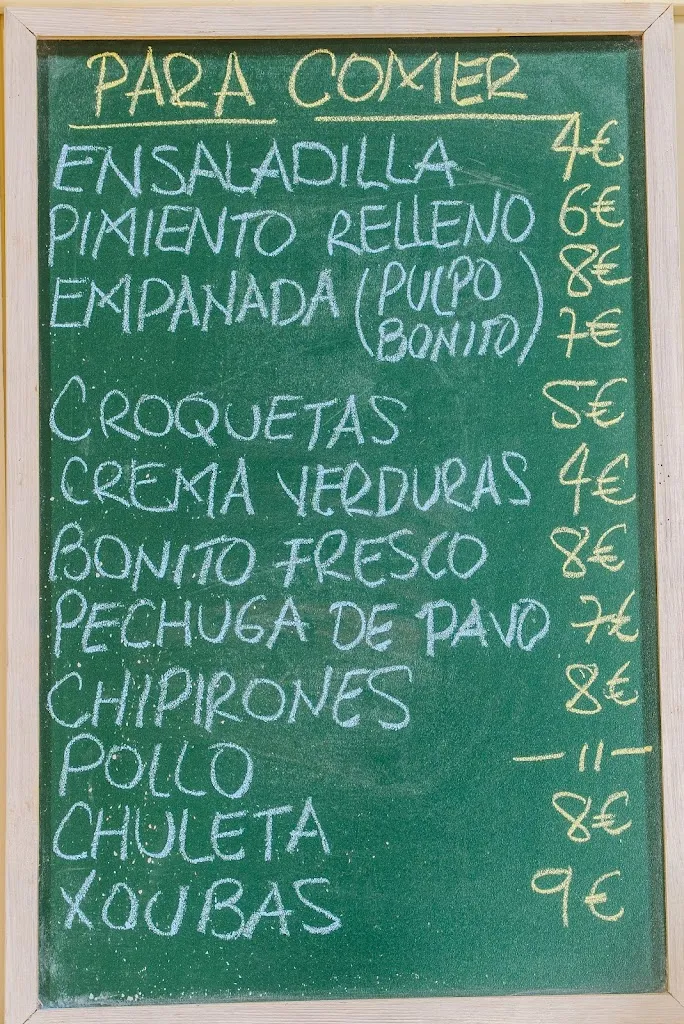 PARA COMER
ENSALADILLA 4€
PIMIENTO RELLENO 6€
EMPANADA (PULPO 8€
BONITO) 7€
CROQUETAS 5€
CREMA VERDURAS 4€
BONITO FRESCO 8€
PECHUGA DE PAVO 7€
CHIPIRONES 8€
POLLO — 11 —
CHULETA 8€
XOUBAS 9€